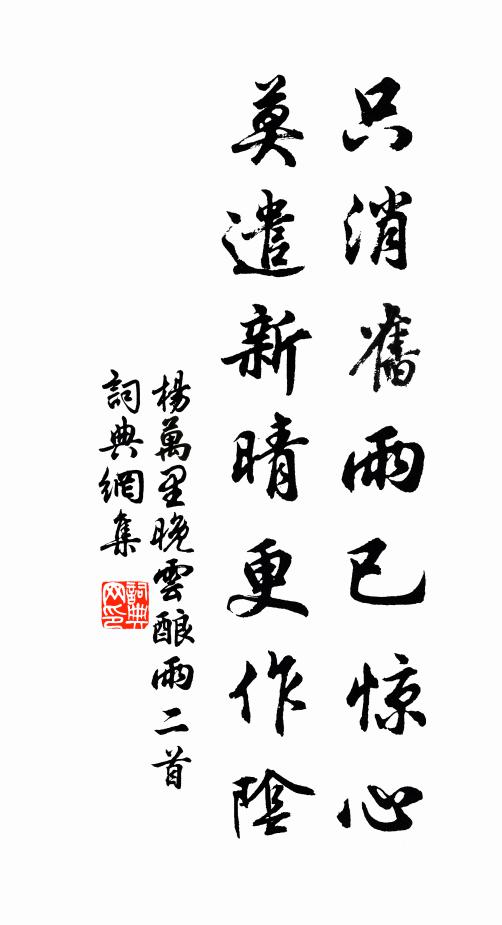 只消舊雨已惊心
莫遣新晴更作陰
楊萬里晚雲酿雨二首
詞典網集
詞典網印